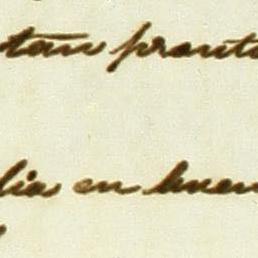 tan pronto
lia en buen